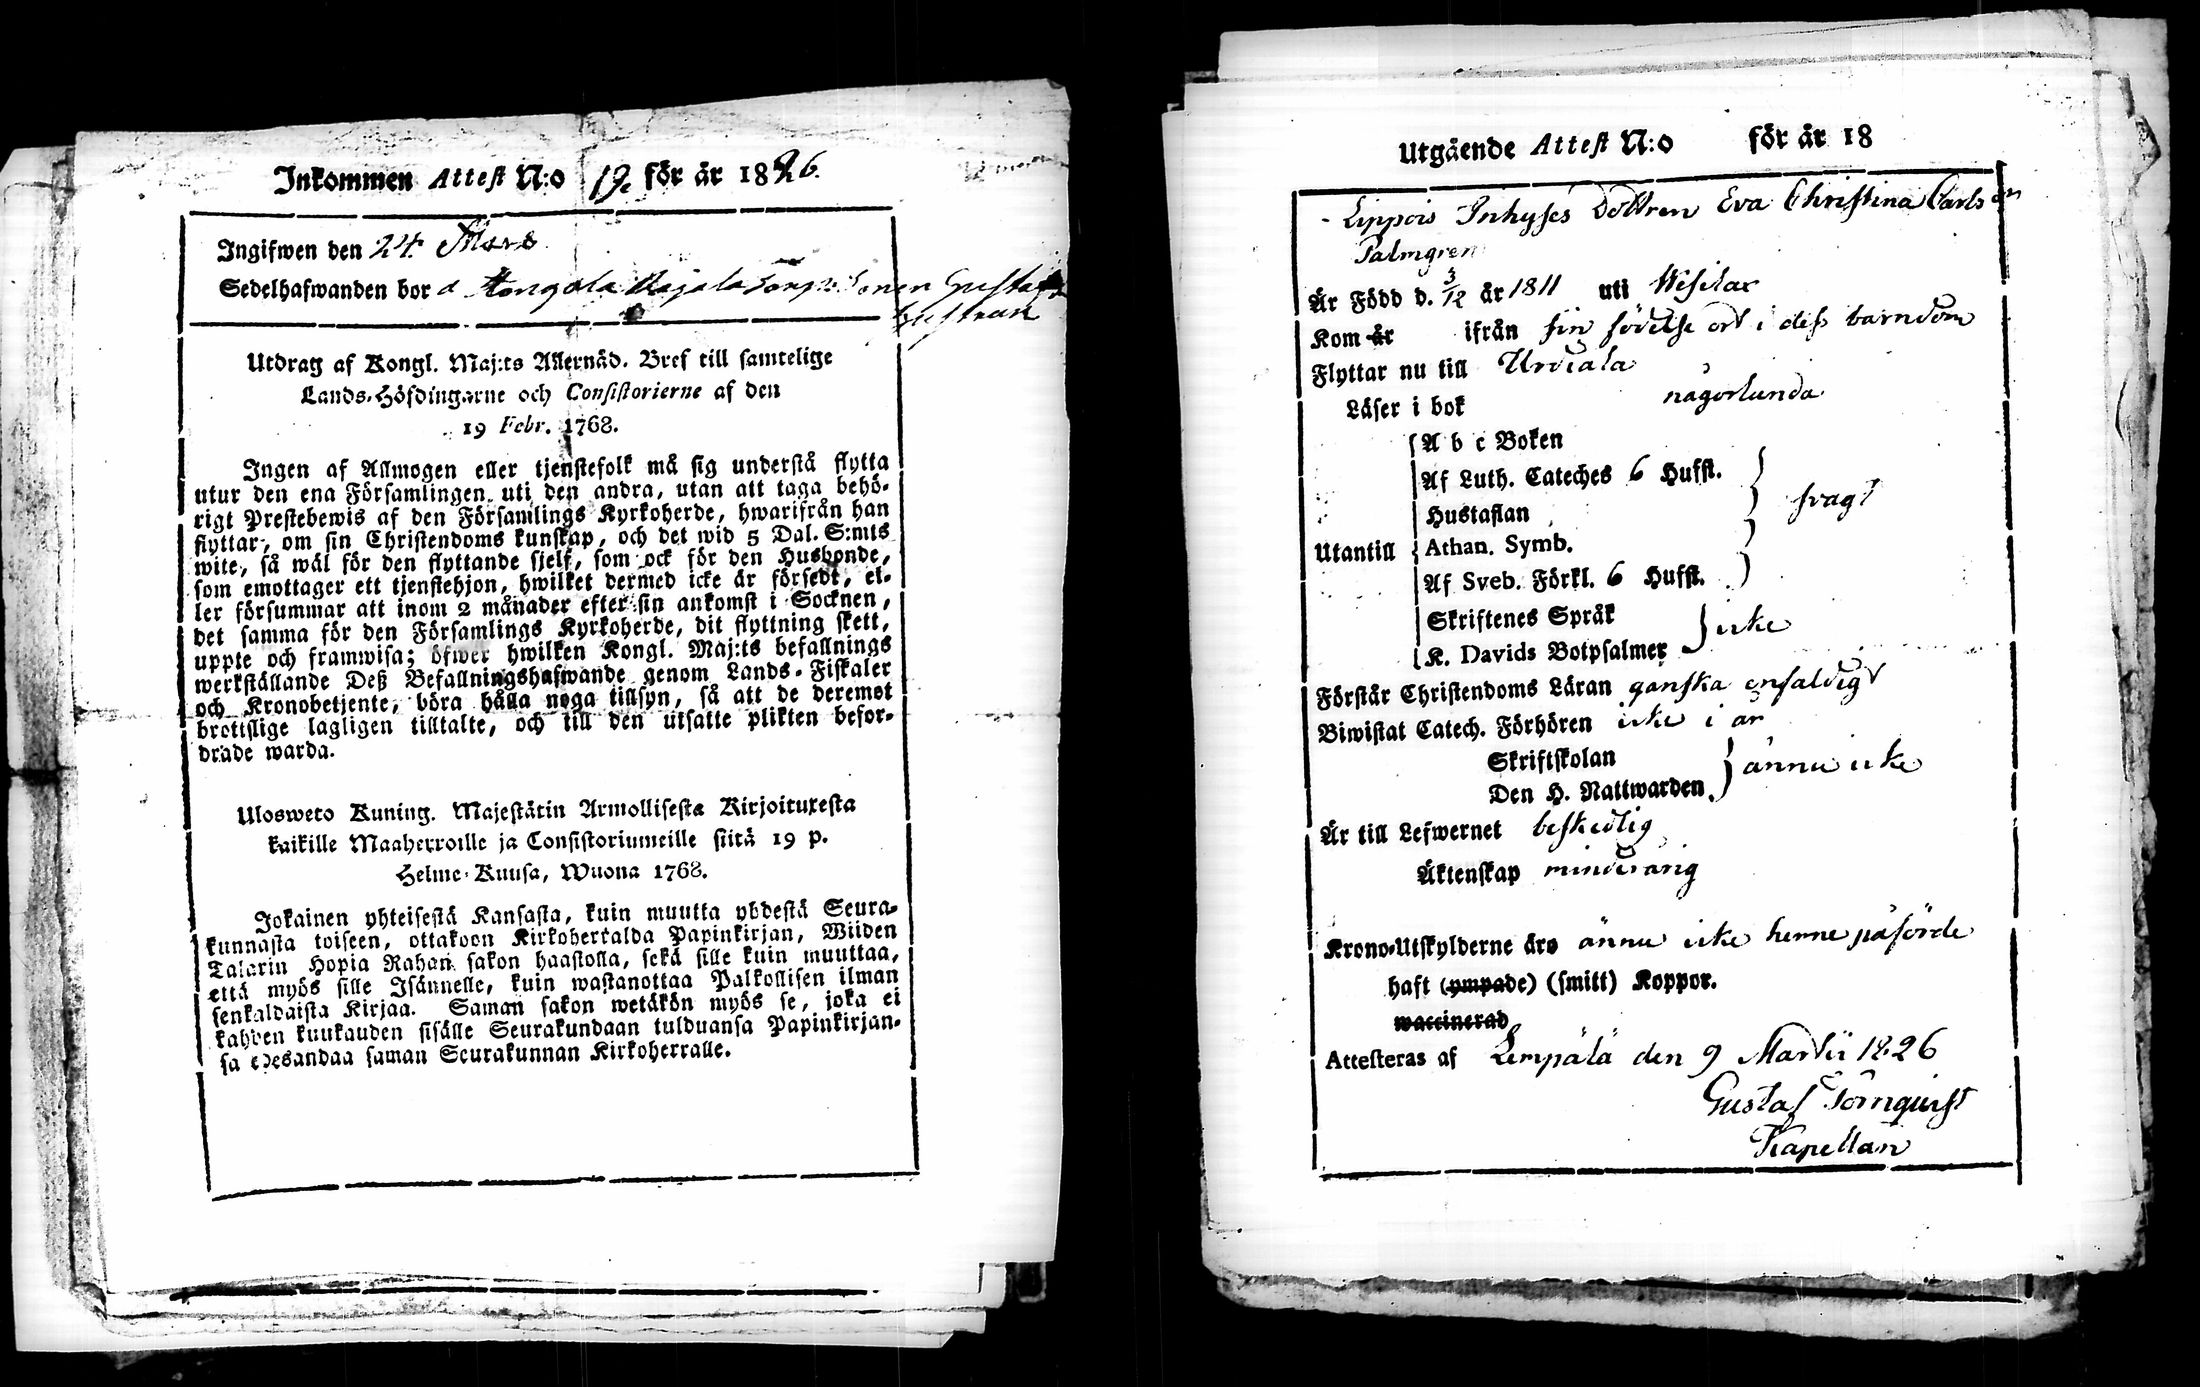 Inkommen Attest N:o 19. för år 1826.
Ingifwen den 24. Mars
Sedelhafwanden bor å Hongola Rajala Gustafs
hustrun
Utdrag af Kongl. Maj:ts Allernåd. Bref till samtelige
Lands-Höfdingarne och Consistorierne af den
19 Febr. 1768.
Ingen af Allmogen eller tjenstefolk må sig understå flytta
utur den ena Församlingen uti den andra, utan att taga behö-
rigt Prestebewis af den Församlings Kyrkoherde, hwarifrån han
flyttar, om sin Christendoms kunskap, och det wid 5 Dal. S:mts
wite, så wäl för den flyttande sjelf, som ock för den Husbonde,
som emottager ett tjenstehjon, hwilket dermed icke är försedt, el-
ler försummar att inom 2 månader efter sin ankomst i Socknen,
det samma för den Församlings Kyrkoherde, dit flyttning skett,
uppte och framwisa; öfwer hwilken Kongl. Maj:ts befallnings
werkställande Deß Befallningshafwande genom Lands-Fiskaler
och Kronobetjente, böra hålla noga tillsyn, så att de deremot
brottslige lagligen tilltalte, och till den utsatte plikten befor-
drade warda.
Ulosweto Kuning. Majestätin Armollisesta Kirjoituxesta
kaikille Maaherroille ja Consistoriumeille siitä 19 p.
Helme-Kuusa, Wuona 1768.
Jokainen yhteisestä Kansasta, kuin muutta yhdestä Seura-
kunnasta toiseen, ottakoon Kirkoherralda Papinkirjan, Wiiden
Talarin Hopia Rahan sakon haastolla, sekä sille kuin muuttaa,
että myös sille Isännelle, kuin wastanottaa Palkollisen ilman
senkaldaista Kirjaa. Saman sakon wetäkön myös se, joka ei
kahden kuukauden sisälle Seurakundaan tulduansa Papinkirjan-
sa edesandaa saman Seurakunnan Kirkoherralle.
Utgående Attest N:o för år 18
Lippois Inhyses Dottren Eva Christina Carls dr
Palmgren
Är Född d. 3/12 år 1811 uti Wesilax
Kom år ifrån sin födelse ort i dess barndom
Flyttar nu till Urdiala
Läser i bok någorlunda
A b c Boken
Af Luth. Cateches 6 Hufst.
Hustaflan svagt
Utantill Athan. Symb.
Af Sveb. Förkl. 6 Hufst.
Skriftenes Språk
K. Davids Botpsalmer icke
Förstår Christendoms Läran ganska enfaldigt
Biwistat Catech. Förhören icke i år
Skriftskolan
Den H. Nattwarden ännu icke
Är till Lefwernet beskedlig
Äktenskap minderårig
Krono-Utskylderne äro ännu icke henne påförde
haft (ympade) (smitt) Koppor.
waccinerad
Attesteras af Lempälä den 9 Martii 1826
Gustaf Törnquist
Kapellan